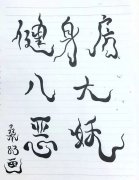 健身房
八大
恶妖
画